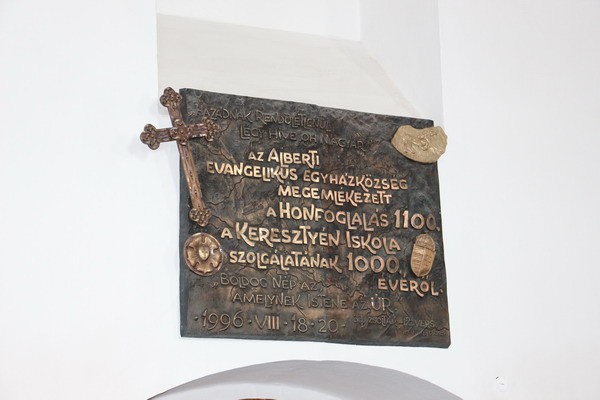 HAZÁDNAK RENDÜLETLENÜL
LÉGY HÍVE, ÓH MAGYAR
AZ ALBERTI
EVANGÉLIKUS EGYHÁZKÖZSÉG
MEGEMLÉKEZETT
A HONFOGLALÁS 1100.
A KERESZTYÉN ISKOLA
SZOLGÁLATÁNAK 1000.
ÉVÉRŐL.
„BOLDOG NÉP AZ,
AMELYNEK ISTENE AZ ÚR
·1996·VIII·18-20·